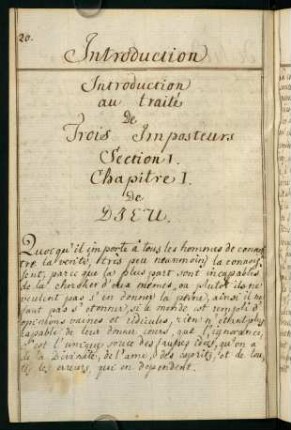 20.
Introduction
Introduction
au traité
de
Trois Imposteurs
Section 1.
Chapitre I.
de
DIEU.
Quoiqu'il importe à tous les hommes de connoi
tre la verité, tres peu neanmoins la connois
sent, parce que la plus part sont incapables
de la chercher d'eux mèmes, ou plutot ils ne
veulent pas s'en donner la peine, ainsi il ne
faut pas s'etonner, si le monde est rempli d'
opinions vaines et ridicules, rien n'etant plus
capable de leur donner cours, que l'ignorance,
c'est l'unique source des fausses idées, qu'on a
de la Divinité, de l'ame, des esprits, et de tou
tes les erreurs, qui en dependent.